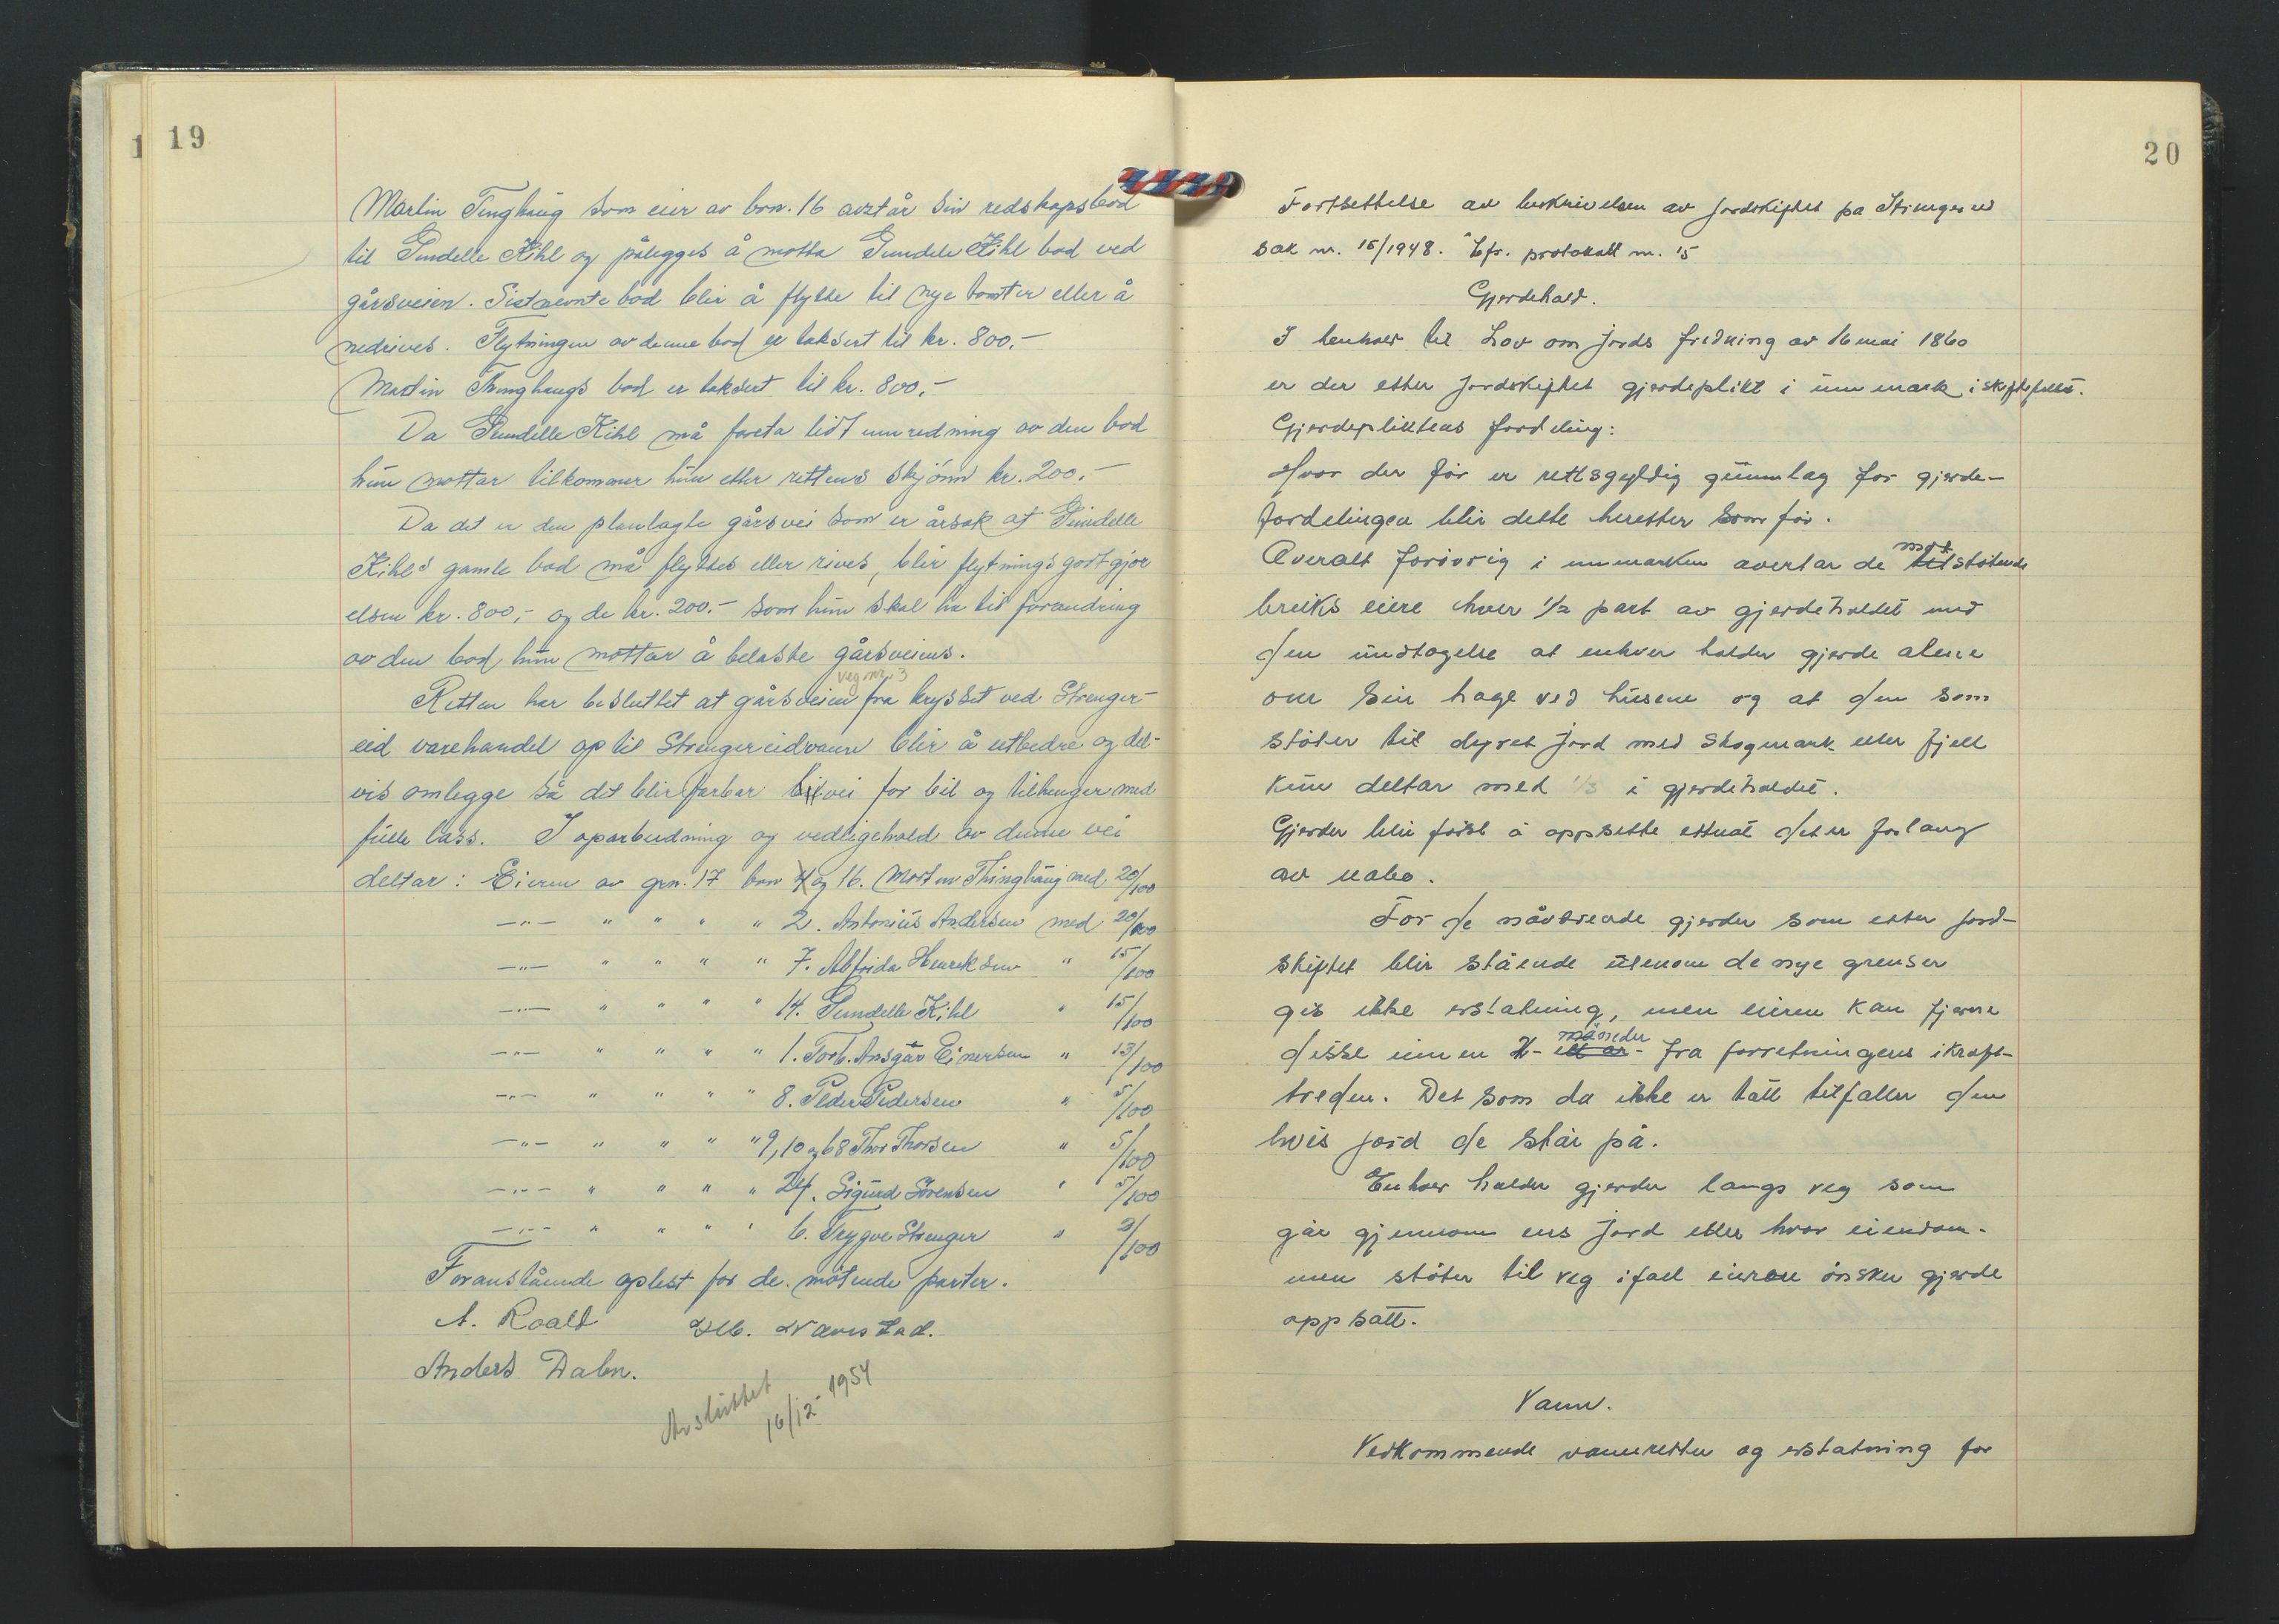 19
Martin Tinghaug som eier av bnr. 16 avstår sin redskapsbod
til Gundelle Kihl og pålegges å motta Gundele Kihl bod ved
gårsveien. Sistnevnte bod blir å flytte til nye tomter eller å
nedrives. Flytningen av denne bod er taksert til kr. 800,-
Martin Thinghaugs bod er taksert til kr. 800,-
Da Gundelle Kihl må foreta lidt innredning av den bod
hun mottar tilkommer hun etter rettens skjönn kr. 200,-
Da det er den planlagte gårsvei som er årsak at Gundelle
Kihls gamle bod må flyttes eller rives, blir flytningsgodtgjör
elsen kr. 800,- og de kr. 200.- som hun skal ha til forandring
av den bod hun mottar å belaste gårsveiens.
veg nr. 3
Retten har besluttet at gårsveien fra krysset ved Strenger-
eid varehandel op til Strengereidvann blir å utbedre og del-
vis omlegge så det blir farbar bilvei for bil og tilhenger med
fulle lass. I oparbeidning og vedligehold av denne vei
deltar: Eieren av grn. 17 bnr 4 og 16. Martin Thinghaug med 20/100
-"- " " " " 2. Antonius Andersen med 20/100
-"- " " " " 7. Alfrida Henriksen " 15/100
-"- " " " " 14. Gundelle Kihl " 15/100
-"- " " " " 1. Torb. Ansgar Einersen " 13/100
-"- " " " " 8. Peder Pedersen " 5/100
-"- " " " " 9, 10 og 68 Thor Thorsen " 5/100
-"- " " " " 24. Sigurd Sörensen " 5/100
-"- " " " " 6. Trygve Strenger " 2/100
Foranstående oplest for de mötende parter.
A. Roald Navestad.
Anders Dalen.
Avsluttet
16/12-1954
20
Fortsettelse av beskrivelsen av jordskiftet på Strengereid
sak nr. 15/1948. Cfr. protokoll nr. 15
Gjerdehold.
I henhold til Lov om jords fredning av 16 mai 1860
er der etter jordskiftet gjerdeplikt i innmark i skiftefeltet.
Gjerdepliktens fordeling:
Hvor der för er rettsgyldig grunnlag for gjerde-
fordelingen blir dette heretter som för.
mot
Overalt foröვrig i innmarken overtar de tilstötende
bruks eiere hver 1/2 part av gjerdeholdet med
den undtagelse at enhver holder gjerde alene
om sin hage ved husene og at den som
stöter til dyrket jord med skogmark eller fjell
kun deltar med 1/3 i gjerdeholdet.
Gjerder blir först å oppsette ettuat det er forlang
av nabo.
For de nåværende gjerder som etter jord-
skiftet blir stående utenom de nye grenser
gis ikke erstatning, men eieren kan fjerne
måneder
disse innen - ett år - fra forretningens ikraft-
treden. Det som da ikke er tatt tilfaller den
hvis jord de står på.
Enhver holder gjerder langs veg som
går gjennom ens jord eller hvor eiendom-
men stöter til veg ifall eieren önsker gjerde
oppsatt.
Vann.
Vedkommende vannretter og erstatning for